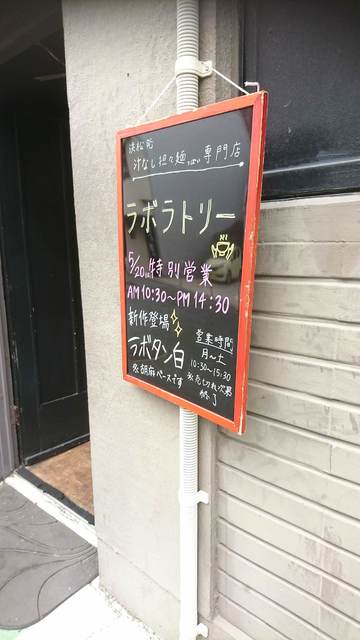 浜松発
汁なし担々麺っぽい専門店
ラボラトリー
5/20(土)特別営業
AM10:30〜PM14:30
新作登場
ラボタン白
※胡麻ベースです
営業時間
月〜土
10:30〜15:30
※売り切れ次第
終了